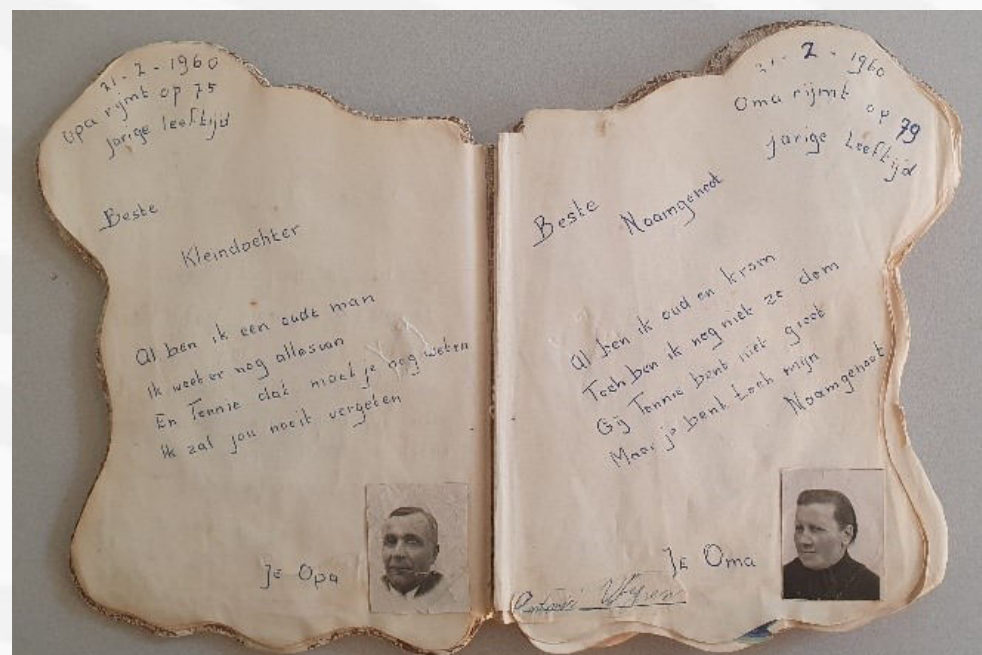 21-2-1960
opa rijmt op 75
jarige leeftijd
Beste
Kleindochter
Al ben ik een oude man
Ik weet er nog allesvan
En Tennie dat moet je nog weten
Ik zal jou nooit vergeten
Je Opa
21-2-1960
Oma rijmt op 79
jarige Leeftijd
Beste
Naamgenoot
Al ben ik oud en krom
Toch ben ik nog niet zo dom
Gij Tennie bent niet groot
Maar je bent toch mijn
Naamgenoot
Je Oma